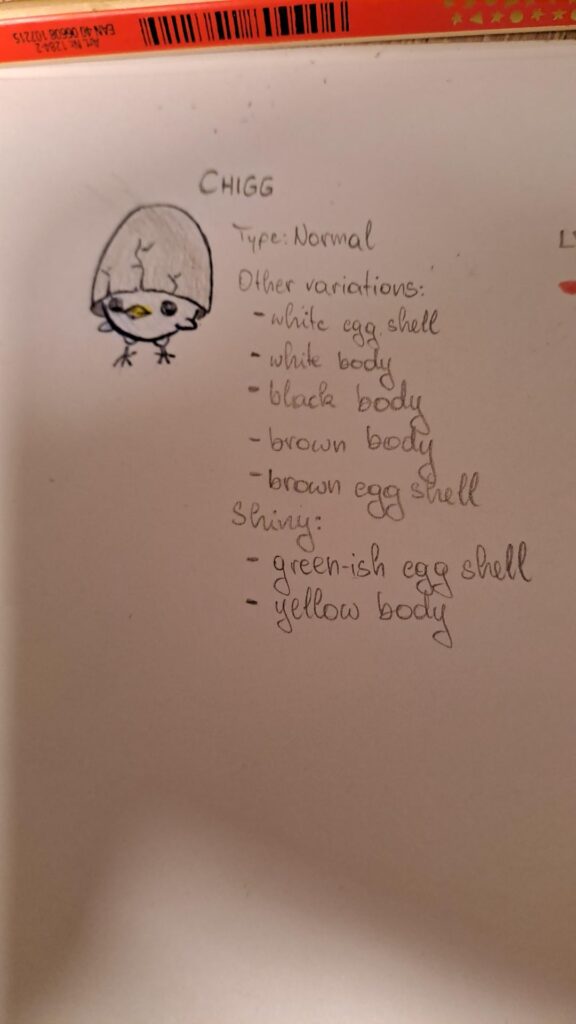 Art. Nr. 1284-2
EAN 40 06608 107215
CHIGG
Type: Normal
Other variations:
- white egg shell
- white body
- black body
- brown body
- brown egg shell
Shiny:
- green-ish egg shell
- yellow body